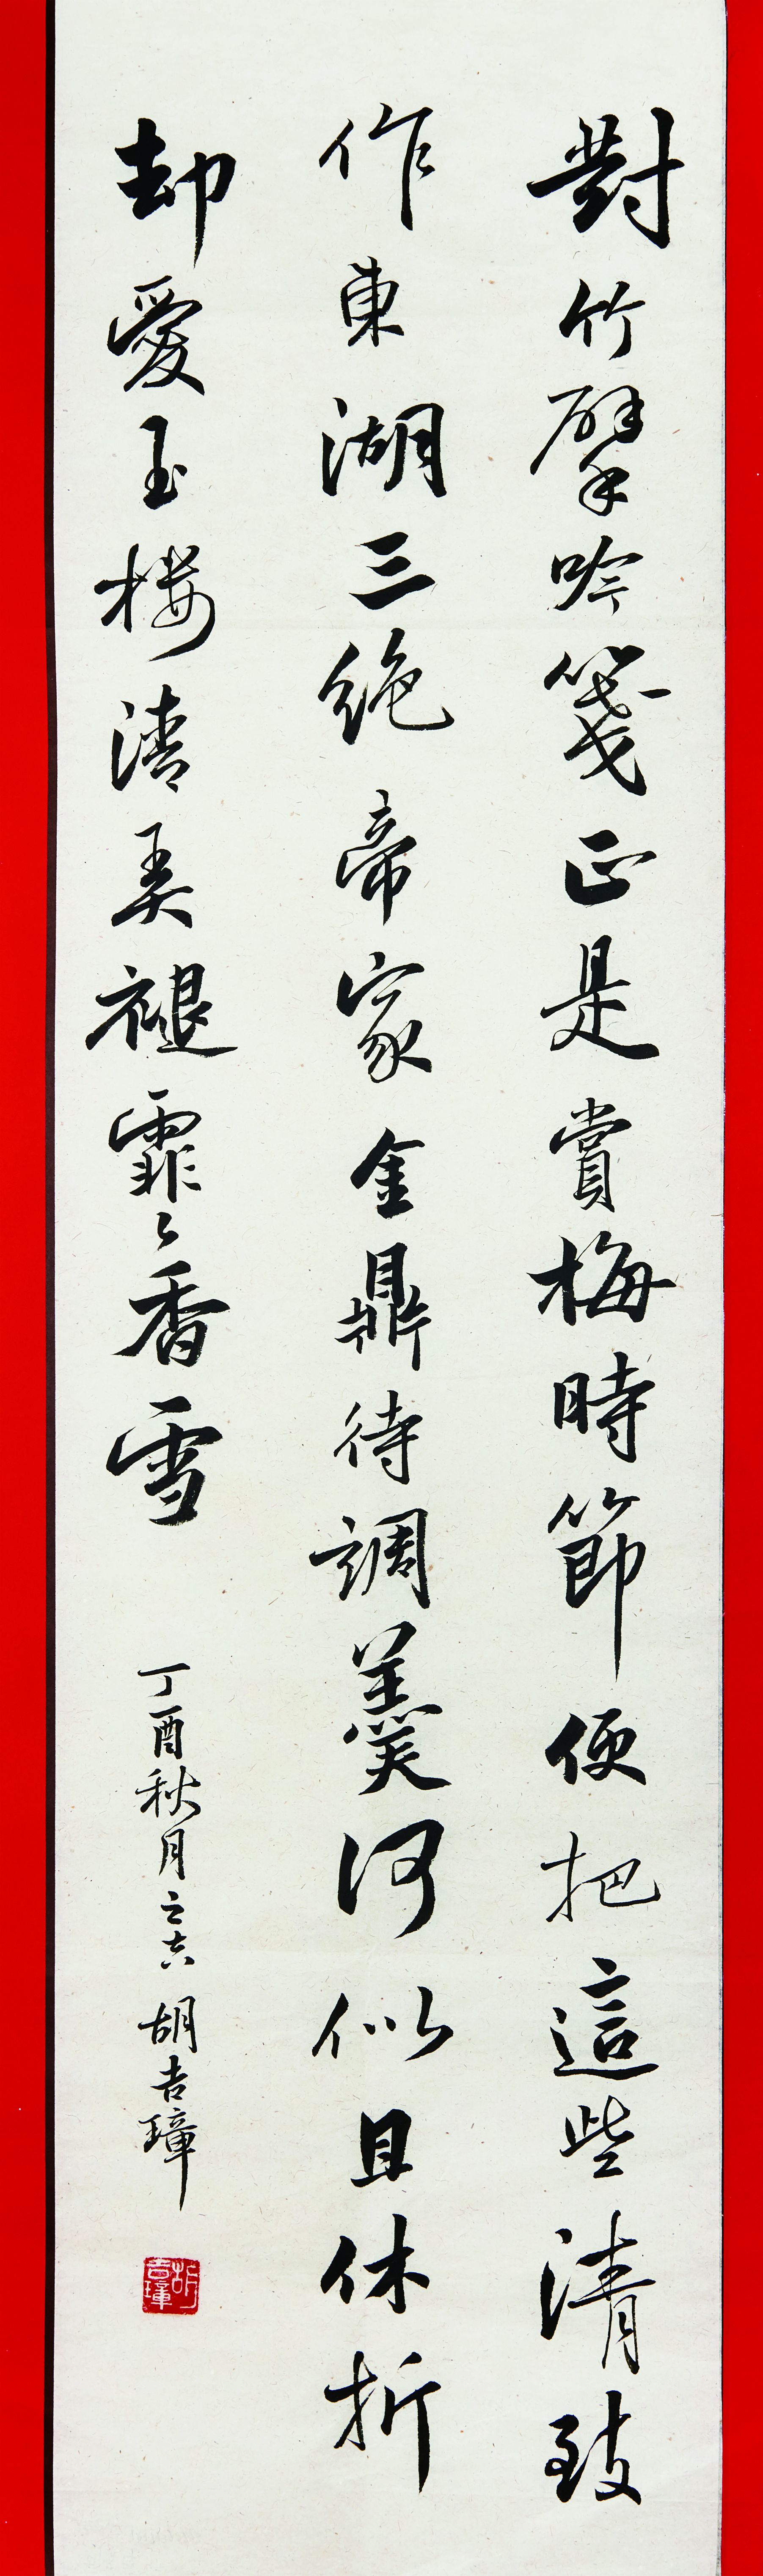 對竹擘吟箋正是賞梅時節便把這些清致
作東湖三絶帝家金鼎待調羹何似且休折
却愛玉樓清弄褪霏々香雪
丁酉秋月之吉 胡吉璋
胡吉璋